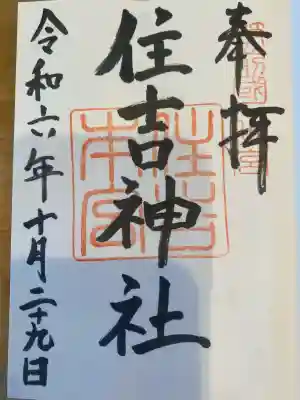 奉拝
住吉神社
令和六年十月二十九日